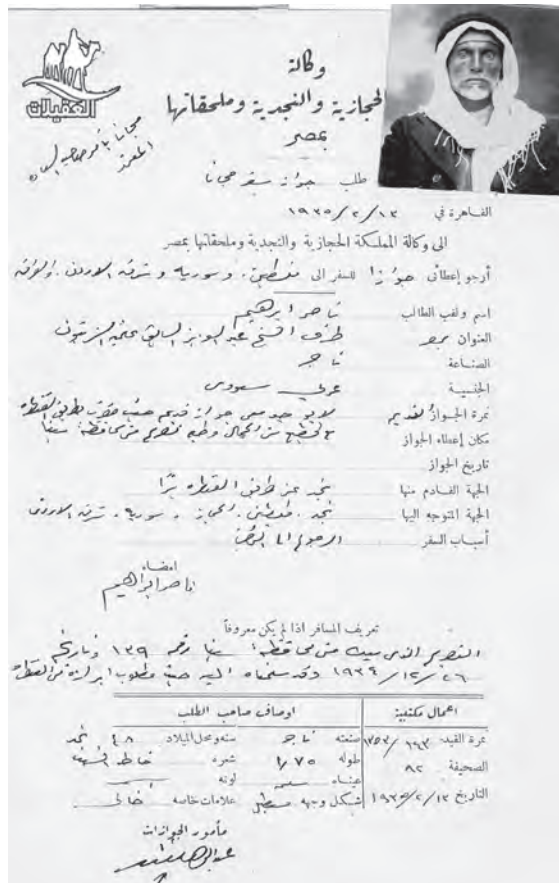 العقيلات
وكالة
الحجازية والنجدية وملحقاتها
بمصر
مجاناً بأمر صاحب السعادة
طلب جواز سفر مجاناً
القاهرة في ١٩٣٥/٢/١٣
الى وكالة المملكة الحجازية والنجدية وملحقاتها بمصر
أرجو إعطائى جوازا للسفر الى فلسطين وسورية وشرق الاردن والعراق
اسم ولقب الطالب ناصر ابراهيم
العنوان بمصر طرف الشيخ عبد العزيز
الصناعة تاجر
الجنسية عربي سعودي
نمرة الجواز القديم لا يوجد معى جواز قديم
مكان إعطاء الجواز
تاريخ الجواز
الجهة القادم منها نجد عن طريق القنطرة برا
الجهة المتوجه اليها نجد . فلسطين . الحجاز . سورية . شرق الاردن
أسباب السفر الرجوع الى الوطن
امضاء
ناصر ابراهيم
تعريف المسافر اذا لم يكن معروفاً
التصريح الذى بيده من محافظة سينا رقم ١٣٩ وتاريخ
٢٦/١٢/١٩٣٤ وقد سلمناه اليه حيث مطلوب ابرازه في القنطرة
اعمال مكتبية اوصاف صاحب الطلب
نمرة القيد ١٤٣/٣٥٣ صنعته تاجر سنه ومحل الميلاد ٤٨ نجد
الصحيفة ٨٢ طوله ١/٧٥ شعره
التاريخ ١٩٣٥/٢/١٣ عيناه لونه
شكل وجهه علامات خاصه خالى
مأمور الجوازات